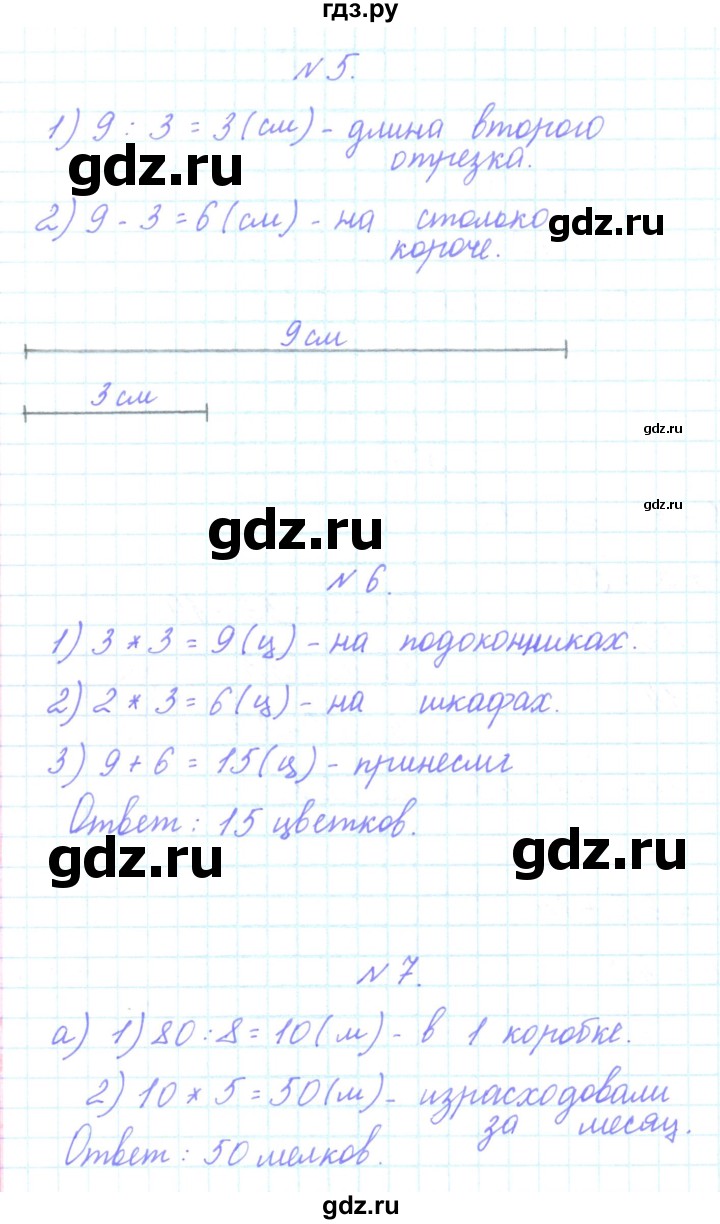 гдз.ру
№ 5.
1) 9 : 3 = 3 (см) - длина второго
отрезка.
gdz.ru
2) 9 - 3 = 6 (см) - на столько
короче.
gdz.ru
9 см
3 см
gdz.ru
gdz.ru
gdz.ru
№ 6.
1) 3 * 3 = 9 (ц) - на подоконниках.
2) 2 * 3 = 6 (ц) - на шкафах.
3) 9 + 6 = 15 (ц) - принесли
Ответ : 15 цветков.
gdz.ru
gdz.ru
№ 7.
а) 1) 80 : 8 = 10 (м) - в 1 коробке.
2) 10 * 5 = 50 (м) - израсходовали
за месяц.
Ответ : 50 мелков.
gdz.ru